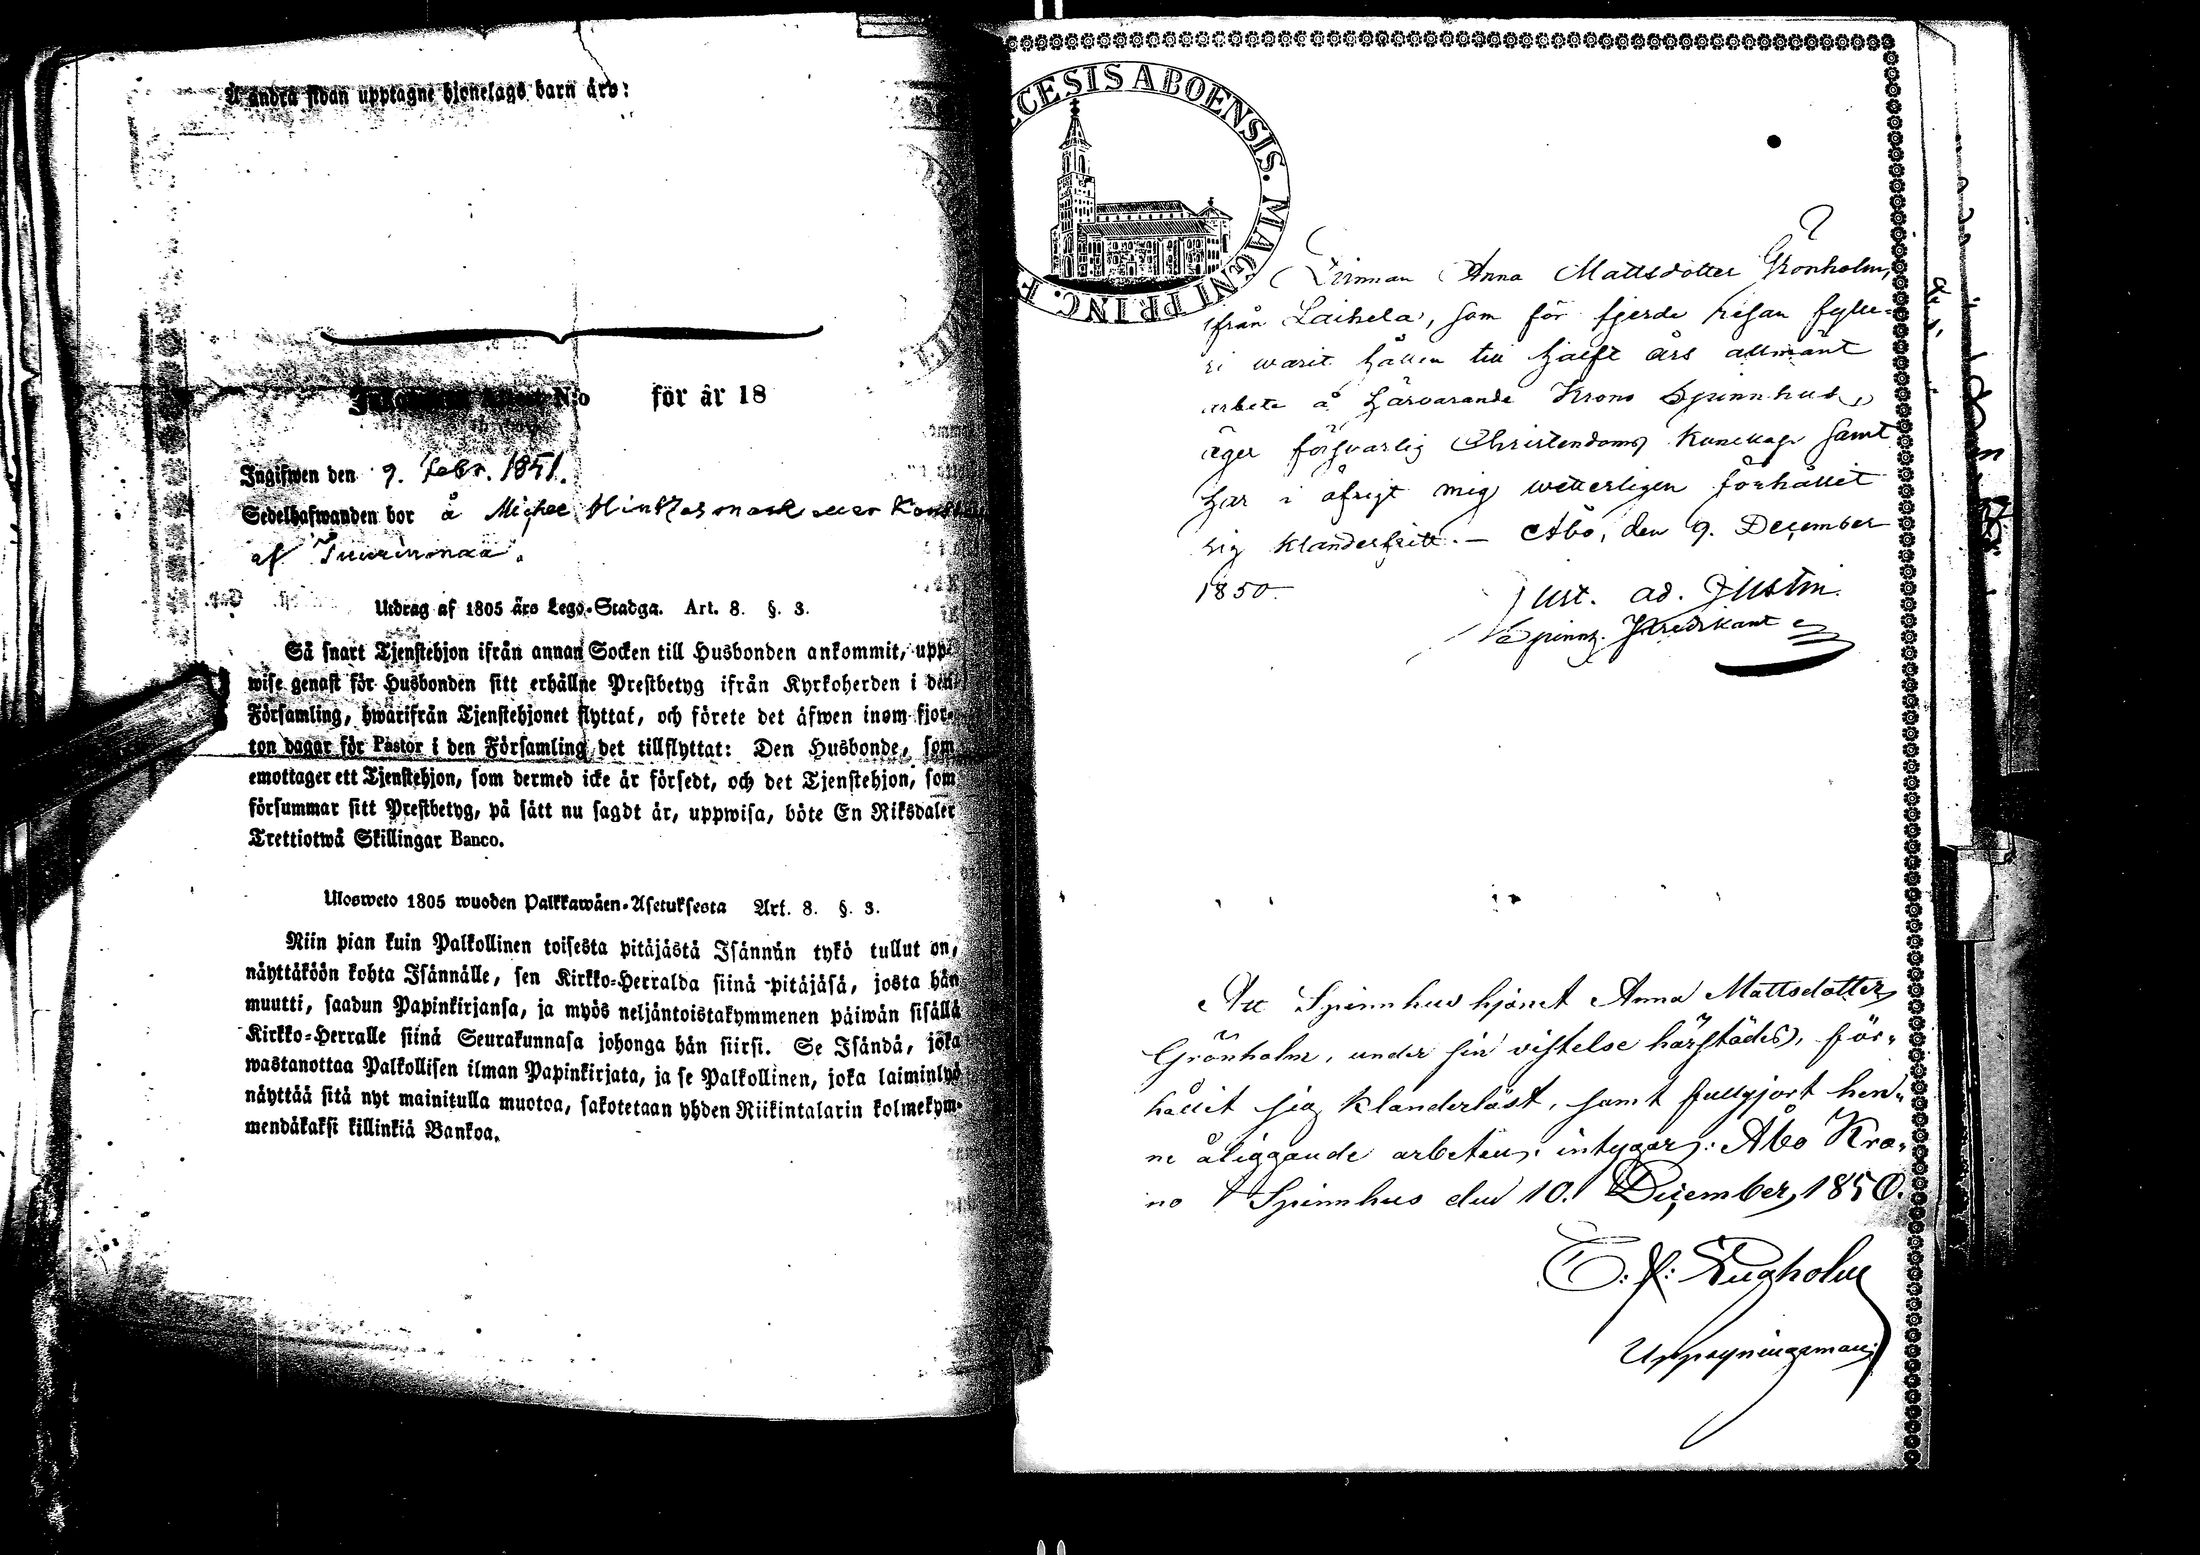 Å andra sidan upptagne hjonelags barn äro:
N:o för år 18
Ingifwen den 9. Febr. 1851.
Sedelhafwanden bor å
af
Utdrag af 1805 års Lego-Stadga. Art. 8. §. 3.
Så snart Tjenstehjon ifrån annan Socken till Husbonden ankommit, upp-
wise genast för Husbonden sitt erhållne Prestbetyg ifrån Kyrkoherden i den
Församling, hwarifrån Tjenstehjonet flyttat, och förete det äfwen inom fjor-
ton dagar för Pastor i den Församling det tillflyttat: Den Husbonde, som
emottager ett Tjenstehjon, som dermed icke är försedt, och det Tjenstehjon, som
försummar sitt Prestbetyg, på sätt nu sagdt är, uppwisa, böte En Riksdaler
Trettiotwå Skillingar Banco.
Ulosweto 1805 wuoden Palkkawäen-Asetuksesta Art. 8. §. 3.
Niin pian kuin Palkollinen toisesta pitäjästä Isännän tykö tullut on,
näyttäköön kohta Isännälle, sen Kirkko-Herralda siinä pitäjäsä, josta hän
muutti, saadun Papinkirjansa, ja myös neljäntoistakymmenen päiwän sisällä
Kirkko-Herralle siinä Seurakunnasa johonga hän siirsi. Se Isändä, joka
wastanottaa Palkollisen ilman Papinkirjata, ja se Palkollinen, joka laiminlyö
näyttää sitä nyt mainitulla muotoa, sakotetaan yhden Riikintalarin kolmekym-
mendäkaksi killinkiä Bankoa.
CESIS ABOENSIS. MAGNI PRINC. F
Qvinnan Anna Mattsdotter Grönholm,
ifrån Laihela, som för fjerde resan fylle-
ri warit hållen till hälft års allmänt
arbete å härvarande Krono Spinnhus,
äger försvarlig Christendoms kunskap samt
har i öfrigt mig wetterligen förhållit
sig klanderfritt. — Åbo, den 9. December
1850.
Just. ad. Justin.
Spinnh. Predikant
Att Spinnhushjonet Anna Mattsdotter
Grönholm, under sin vistelse härstädes, för-
hållit sig klanderlöst, samt fullgjort hen-
ne åliggande arbeten; intygar: Åbo Kro-
no Spinnhus den 10. December 1850.
Uppsyningsman.